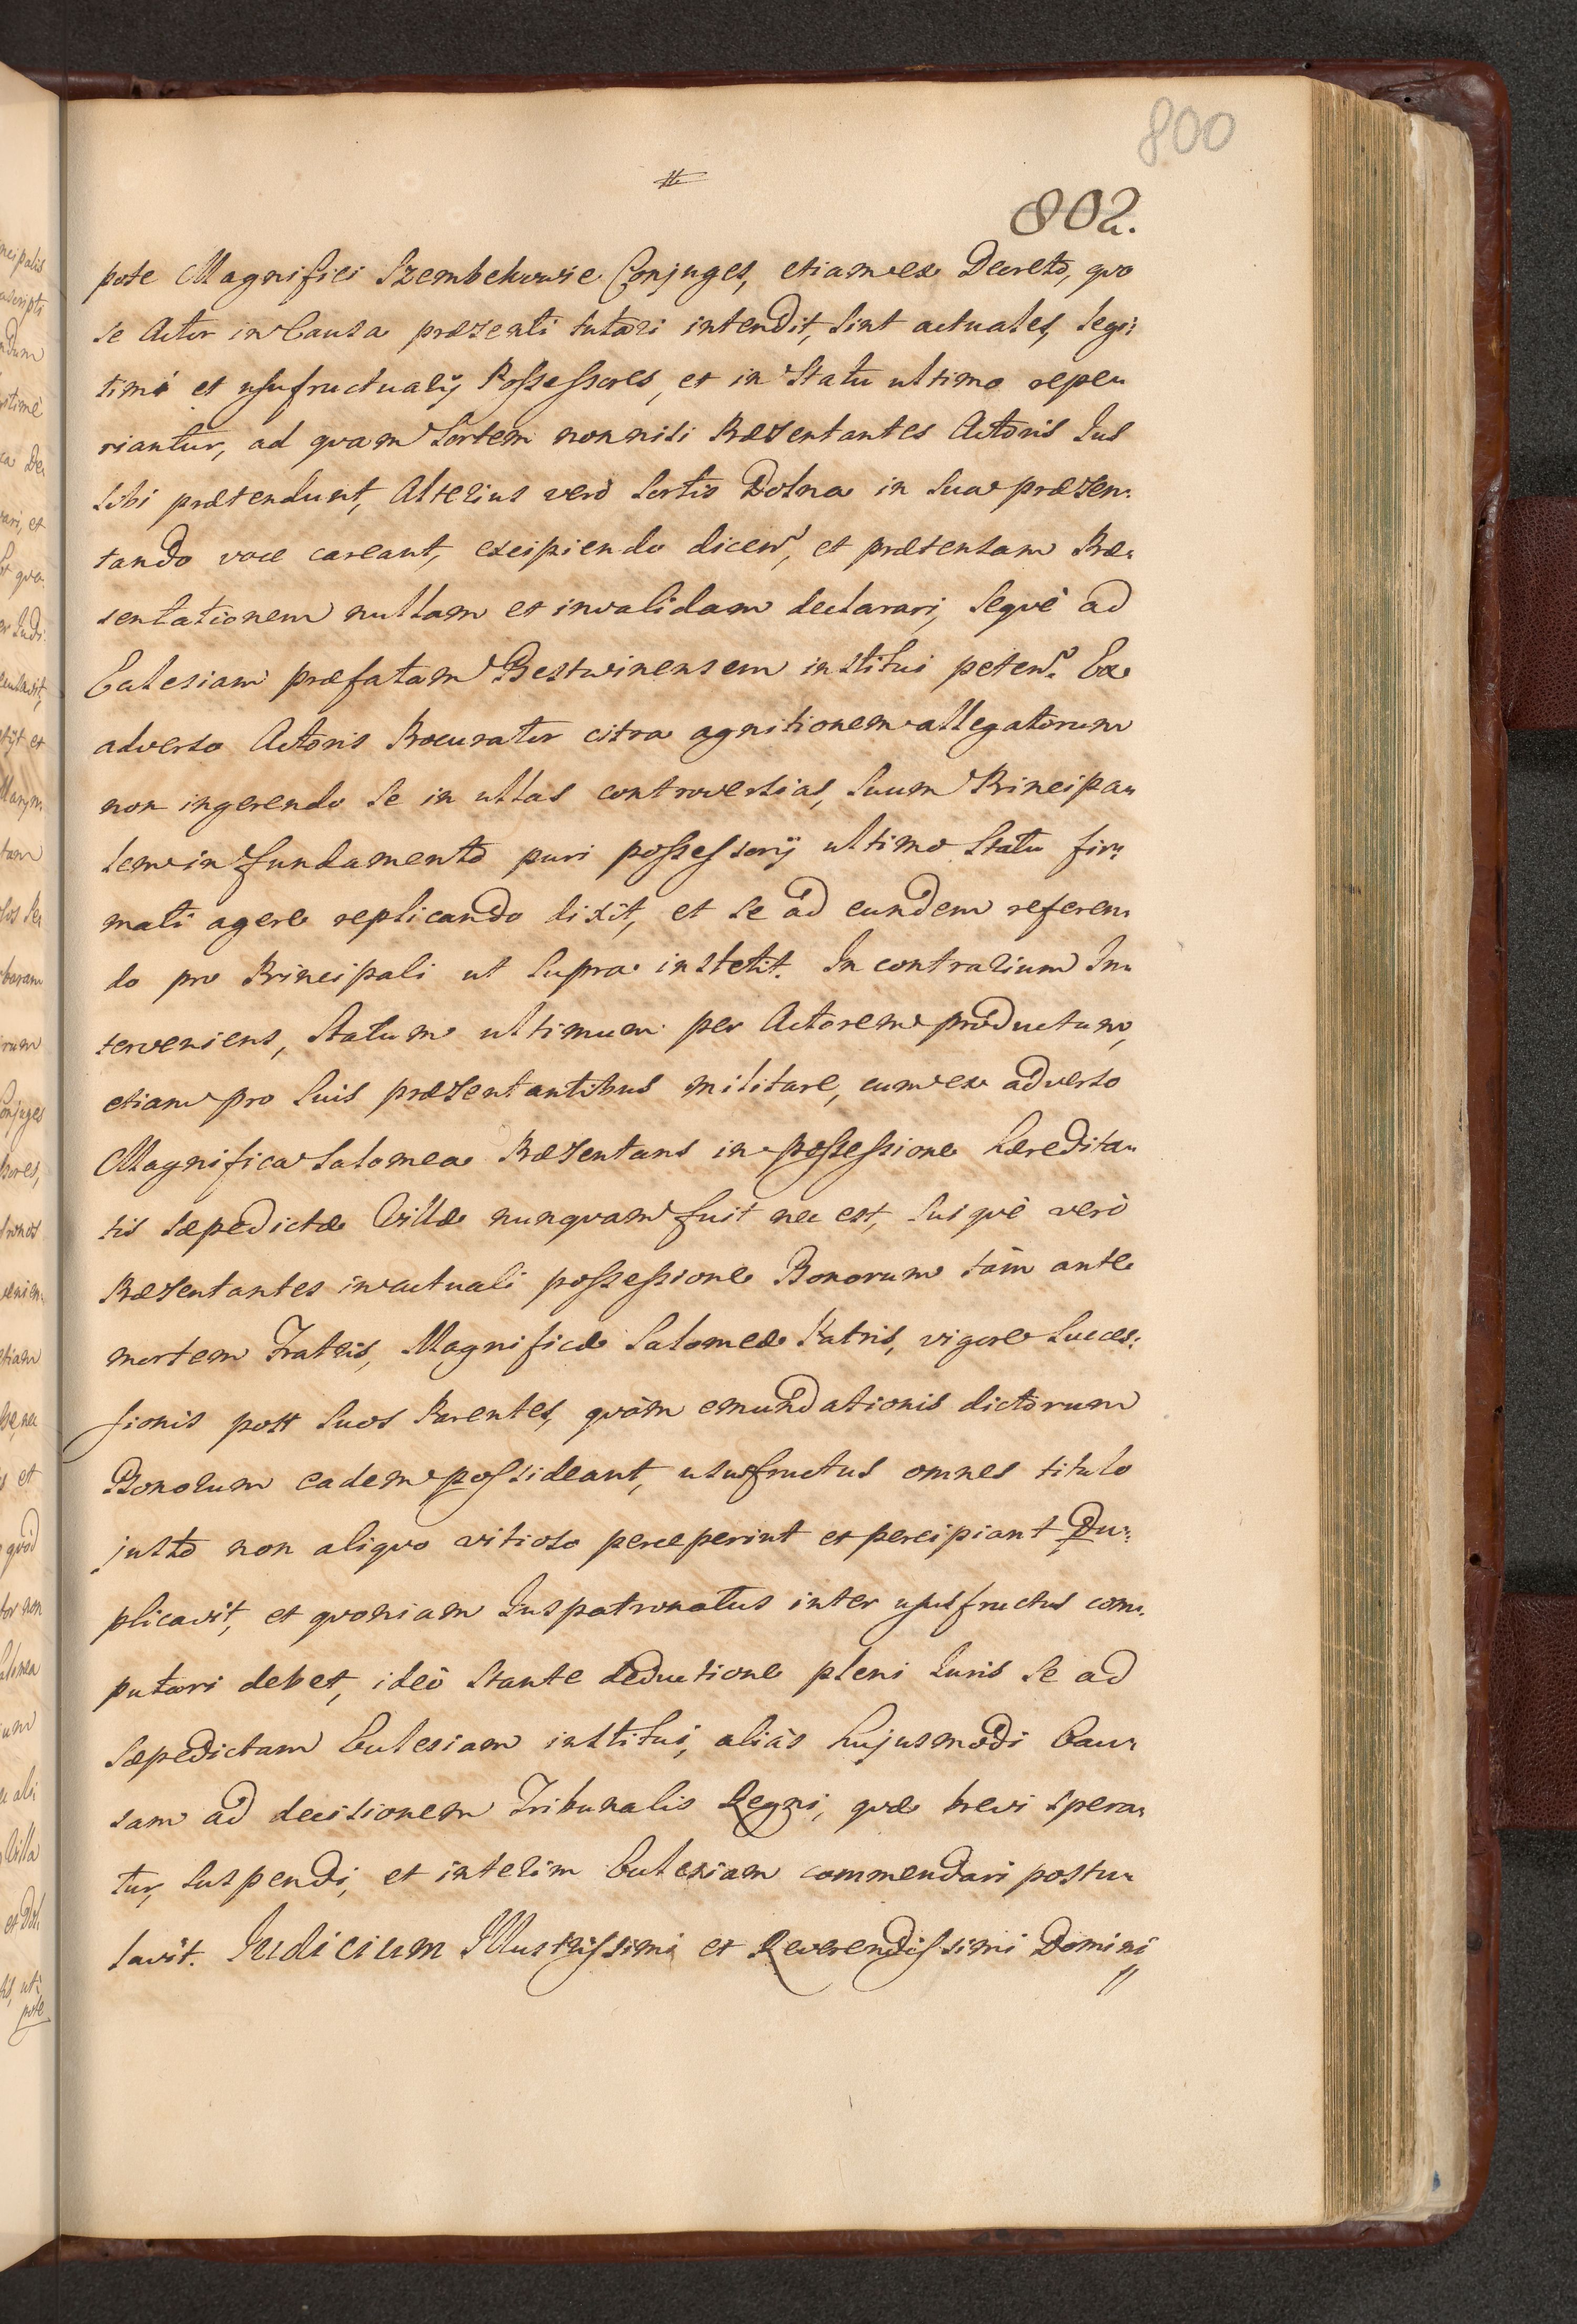 800
802.
pote Magnifici Szembekowie Conjuges, etiam ex Decreto, quo
se Actor in Causa præsenti tutari intendit, sint actuales, legi:
timi et usufructuarij Possessores, et in Statu ultimo repe:
riantur, ad quam Sortem nonnisi Præsentantes Actoris Jus
sibi prætendunt, Alterius verò Sortis Dolna in sua præsen:
tando voce careant, excipiendo dicen, et prætensam Præ:
sentationem nullam et invalidam declarari, seqvè ad
Ecclesiam præfatam Bestwinensem institui peten. Ex
adverso Actoris Procurator citra agnitionem allegatorum
non ingerendo se in ullas controversias, suum Principa:
lem in fundamento puri possessorij ultimo Statu fir:
mati agere replicando dixit, et se ad eundem referen:
do pro Principali ut supra institit. In contrarium In:
terveniens, Statum ultimum per Actorem productum,
etiam pro suis præsentantibus militare, cum ex adverso
Magnifica Salomea Præsentans in possessione hæredita:
tis sæpedictæ Villæ nunquam fuit nec est, suiqvè verò
Præsentantes in actuali possessione Bonorum tàm ante
mortem Fratris, Magnificæ Salomeæ Patris, vigore Succes:
sionis post suos Parentes, quàm emundationis dictorum
Bonorum eadem possideant, ususfructus omnes titulo
justo non aliquo vitioso perceperint et percipiant Du:
plicavit, et quoniam Juspatronatus inter ususfructus com:
putari debet, ideò stante deductione pleni Juris se ad
sæpedictam Ecclesiam institui, aliàs hujusmodi Cau:
sam ad decisionem Tribunalis Regni, quæ brevi spera:
tur, suspendi, et interim Ecclesiam commendari postu:
lavit. Judicium Illustrissimi et Reverendissimi Domini